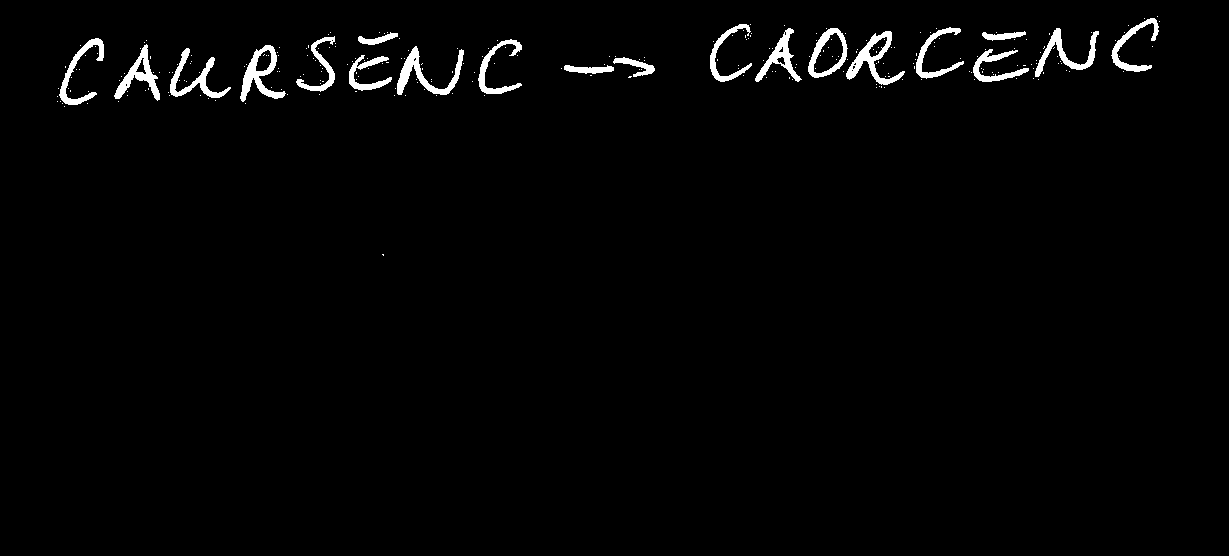 CAURSENC → CAORCENC